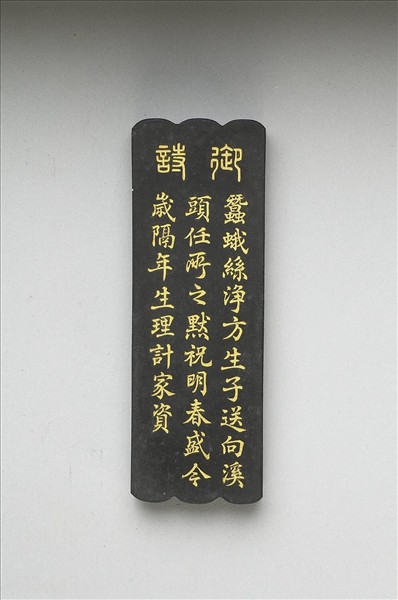 御詩
蠶蛾絲淨方生子送向溪
頭任所之黙祝明春盛今
歳隔年生理計家資